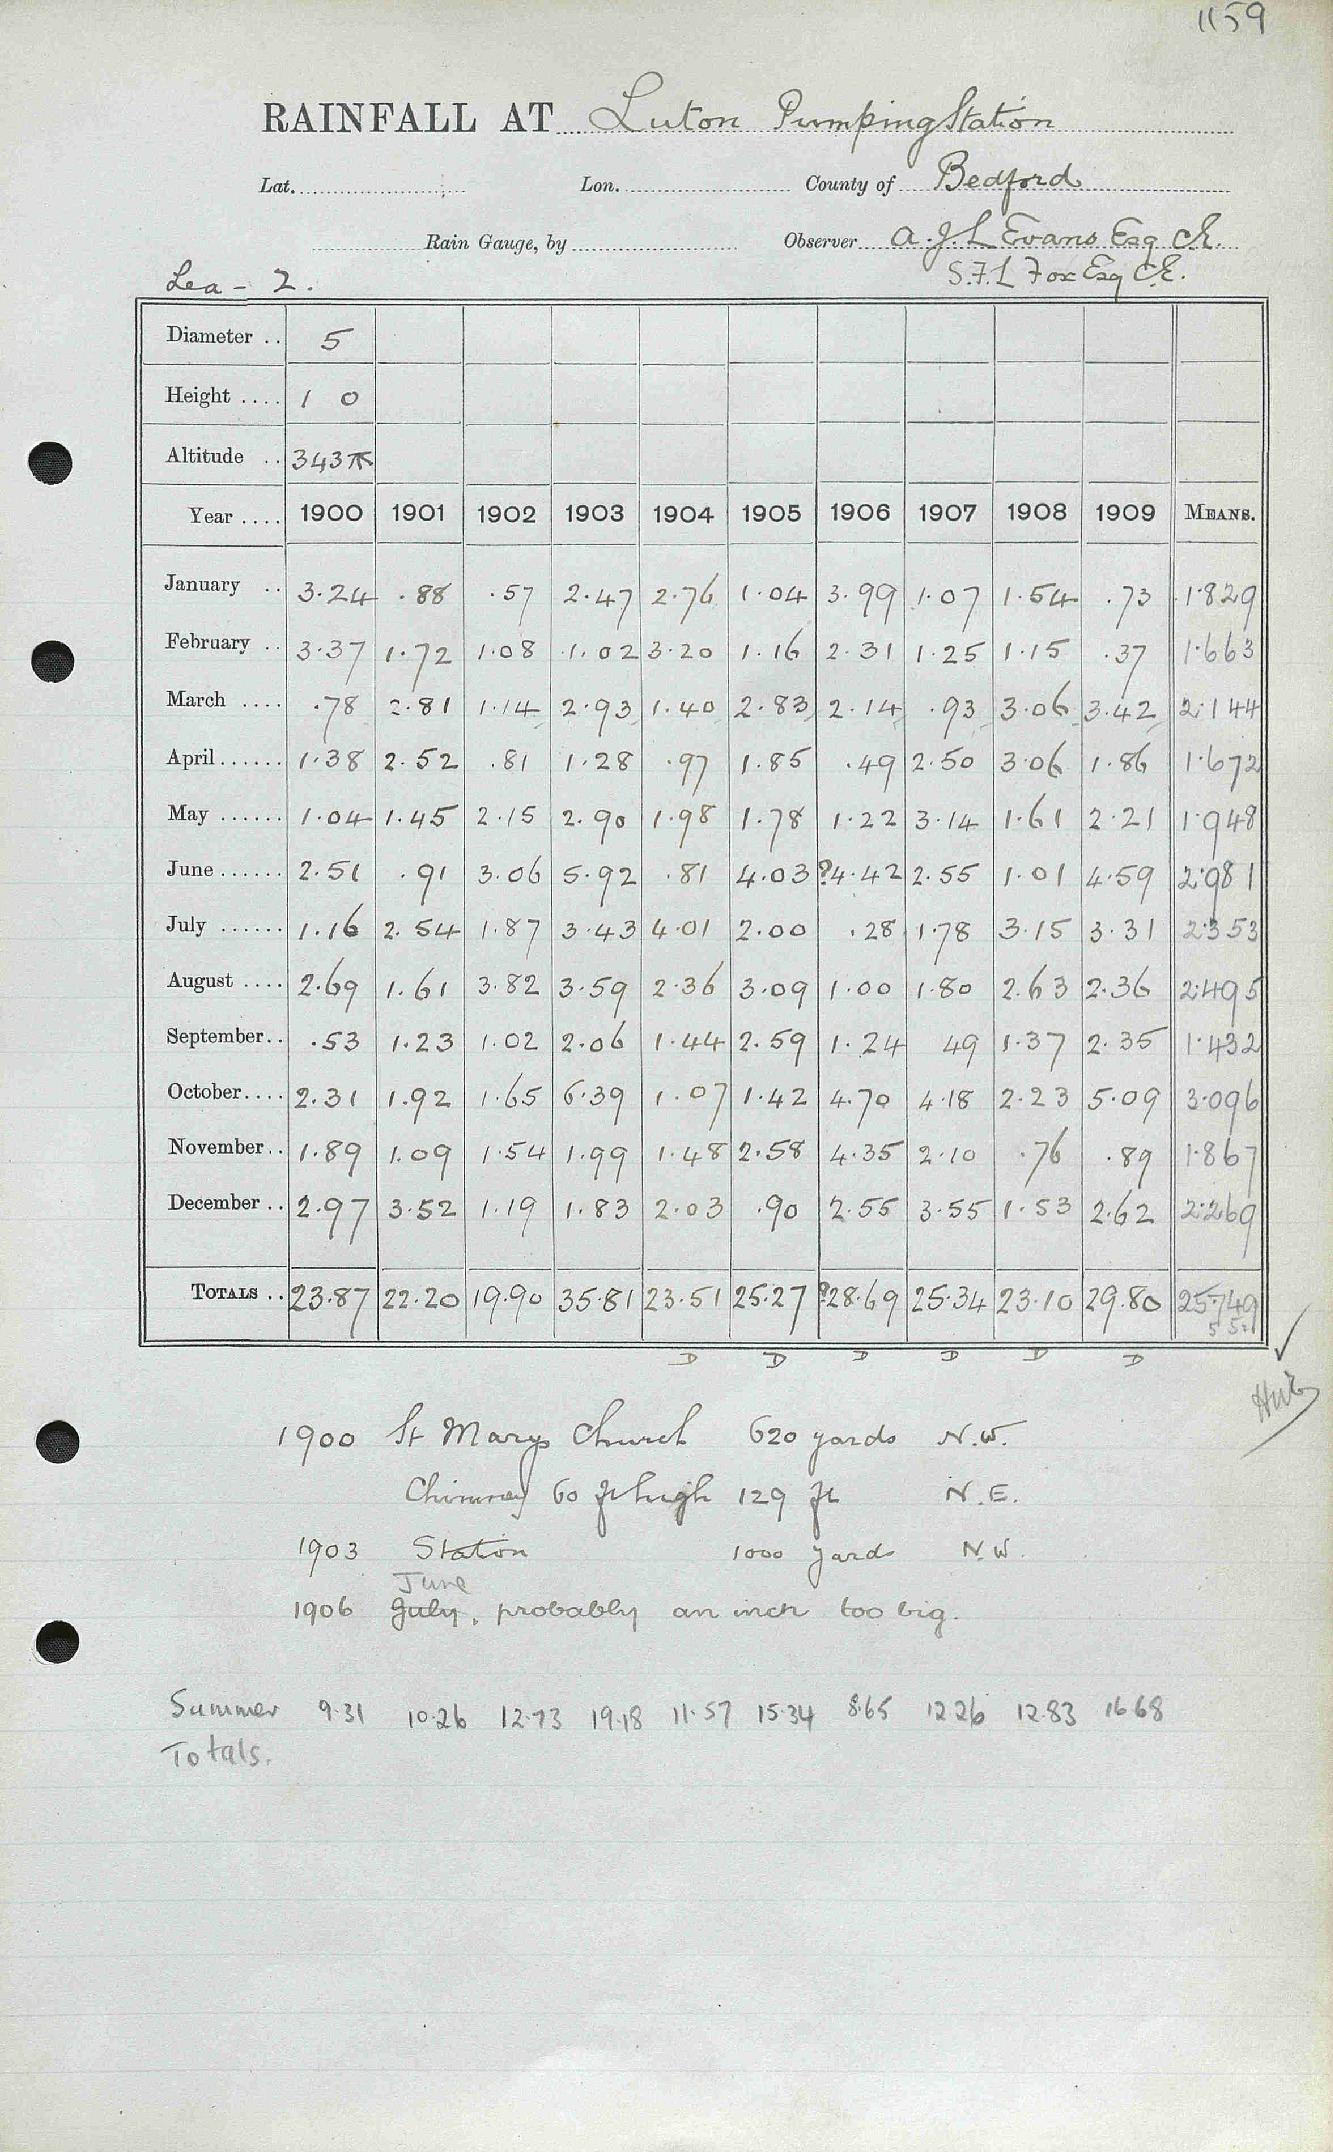 1159
RAINFALL AT Luton Pumping Station
Lat. Lon. County of Bedford
Rain Gauge, by Observer A.J.L Evans Esq C.E.
Lea - 2. S.F.L Fox Esq C.E.
Diameter .. 5
Height .... 1 0
Altitude .. 343
Year .... 1900 1901 1902 1903 1904 1905 1906 1907 1908 1909 MEANS.
January .. 3.24 .88 .57 2.47 2.76 1.04 3.99 1.07 1.54 .73 1.829
February .. 3.37 1.72 1.08 1.02 3.20 1.16 2.31 1.25 1.15 .37 1.663
March .... .78 2.81 1.14 2.93 1.40 2.83 2.14 .93 3.06 3.42 2.144
April ...... 1.38 2.52 .81 1.28 .97 1.85 .49 2.50 3.06 1.86 1.672
May ...... 1.04 1.45 2.15 2.90 1.98 1.78 1.22 3.14 1.61 2.21 1.948
June ...... 2.51 .91 3.06 5.92 .81 4.03 ?4.42 2.55 1.01 4.59 2.981
July ...... 1.16 2.54 1.87 3.43 4.01 2.00 .28 1.78 3.15 3.31 2.353
August .... 2.69 1.61 3.82 3.59 2.36 3.09 1.00 1.80 2.63 2.36 2.495
September.. .53 1.23 1.02 2.06 1.44 2.59 1.24 49 1.37 2.35 1.432
October.... 2.31 1.92 1.65 6.39 1.07 1.42 4.70 4.18 2.23 5.09 3.096
November.. 1.89 1.09 1.54 1.99 1.48 2.58 4.35 2.10 .76 .89 1.867
December .. 2.97 3.52 1.19 1.83 2.03 .90 2.55 3.55 1.53 2.62 2.269
TOTALS .. 23.87 22.20 19.90 35.81 23.51 25.27 ?28.69 25.34 23.10 29.80 25.749
D D D D D D
1900 St Marys Church 620 yards N.W.
Chimney 60 ft high 129 ft N.E.
1903 Station 1000 yards N.W.
June
1906 July, probably an inch too big.
Summer 9.31 10.26 12.73 19.18 11.57 15.34 8.65 12.26 12.83 16.68
Totals.